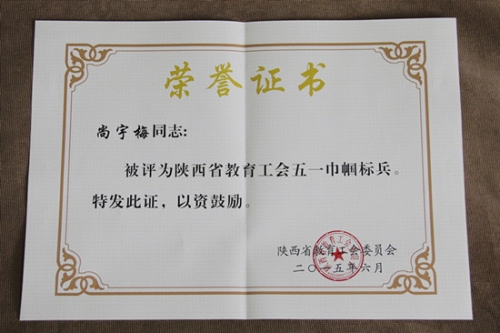 荣誉证书
尚宇梅同志:
被评为陕西省教育工会五一巾帼标兵。
特发此证，以资鼓励。
陕西省教育工会委员会
二〇一五年六月